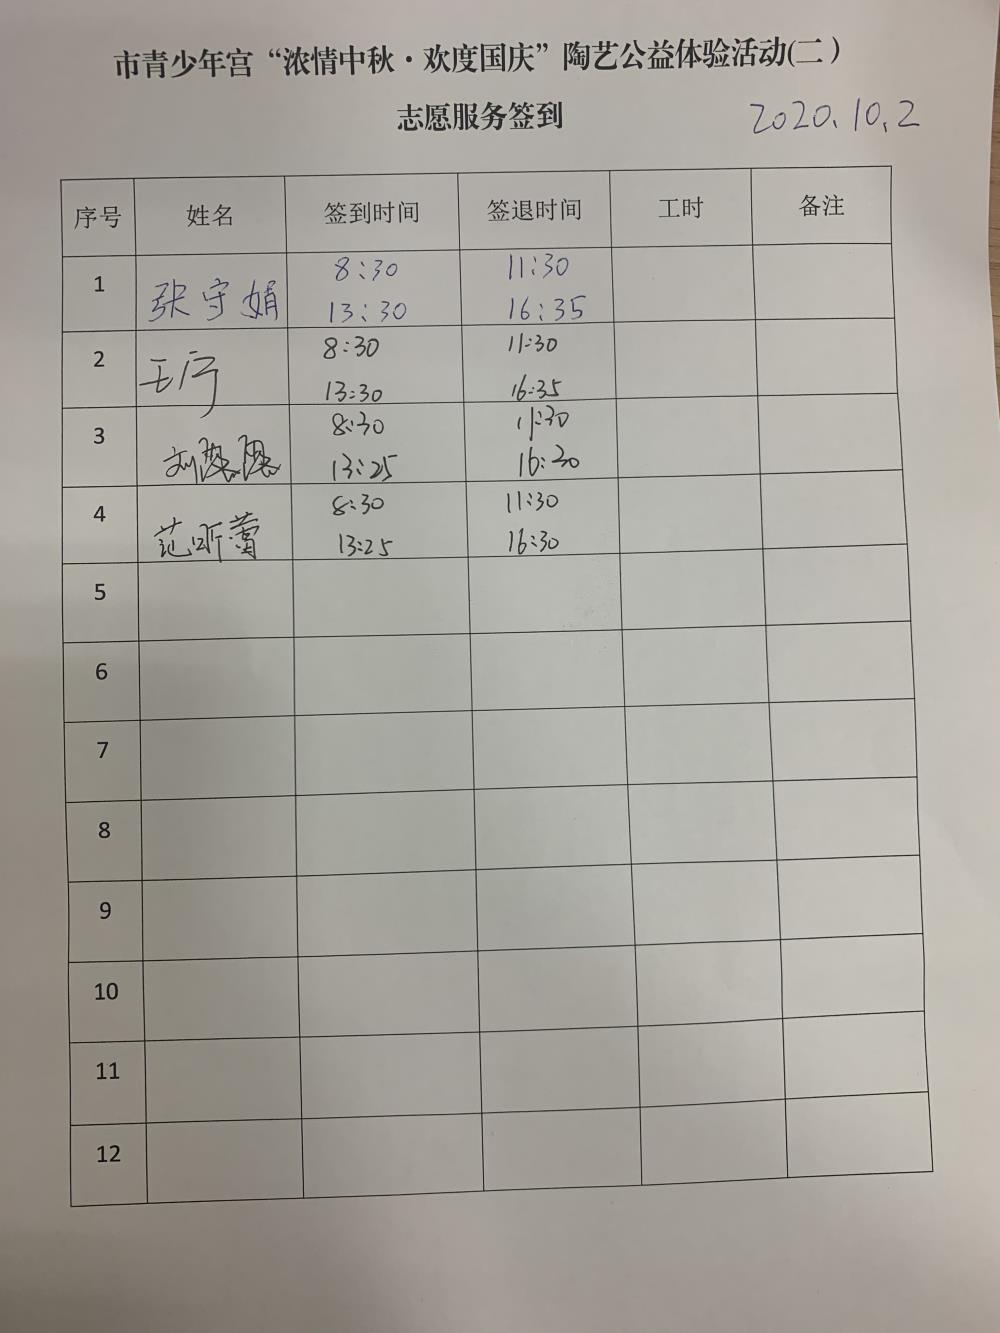 市青少年宫“浓情中秋·欢度国庆”陶艺公益体验活动(二）
志愿服务签到
2020.10.2
序号 姓名 签到时间 签退时间 工时 备注
1 张守娟 8:30 11:30
13:30 16:35
2 王宁 8:30 11:30
13:30 16:35
3 刘 8:30 11:30
13:25 16:30
4 范昕蕾 8:30 11:30
13:25 16:30
5
6
7
8
9
10
11
12